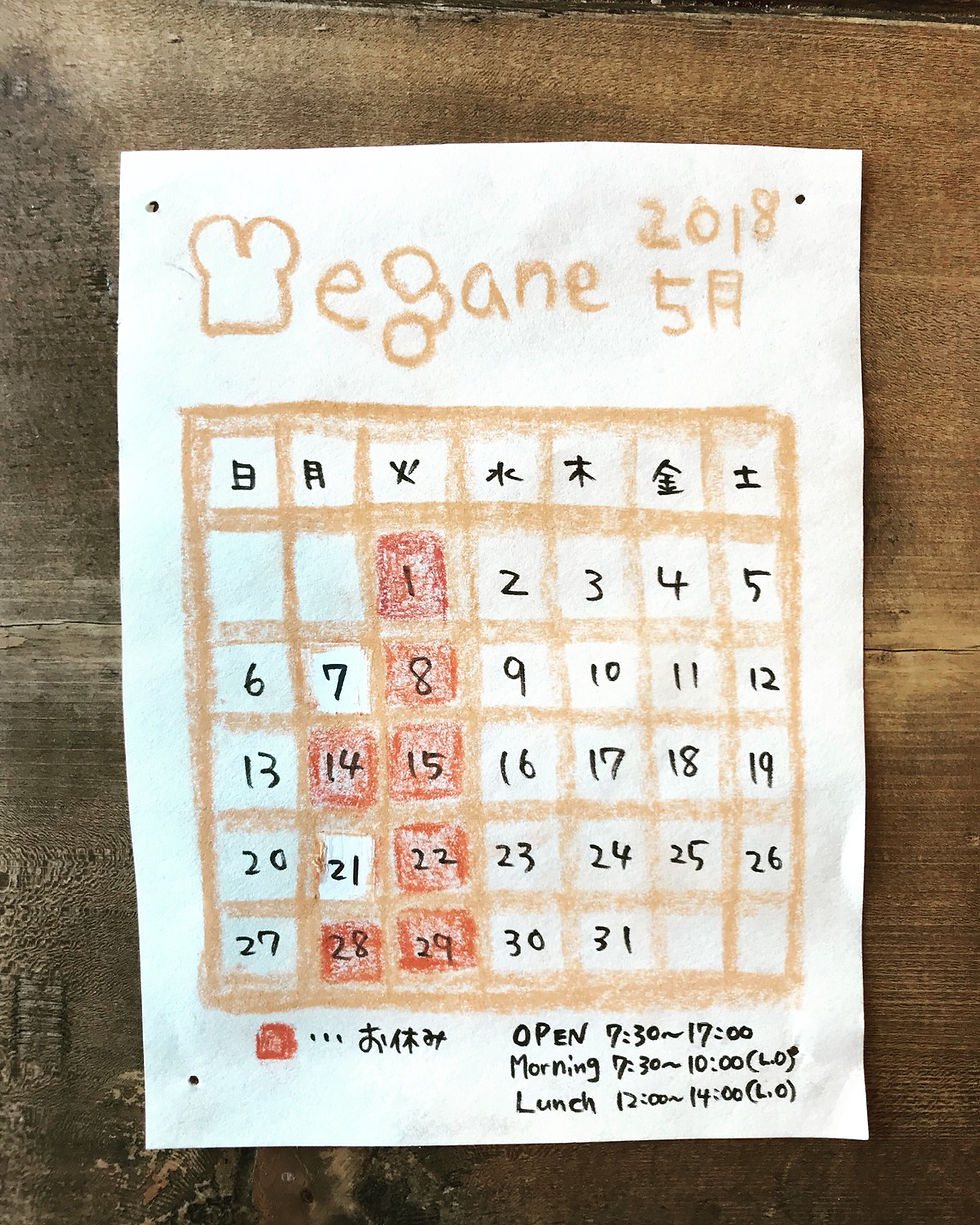 Megane 2018
5月
日 月 火 水 木 金 土
1 2 3 4 5
6 7 8 9 10 11 12
13 14 15 16 17 18 19
20 21 22 23 24 25 26
27 28 29 30 31
… お休み
OPEN 7:30~17:00
Morning 7:30~10:00(L.O)
Lunch 12:00~14:00(L.O)